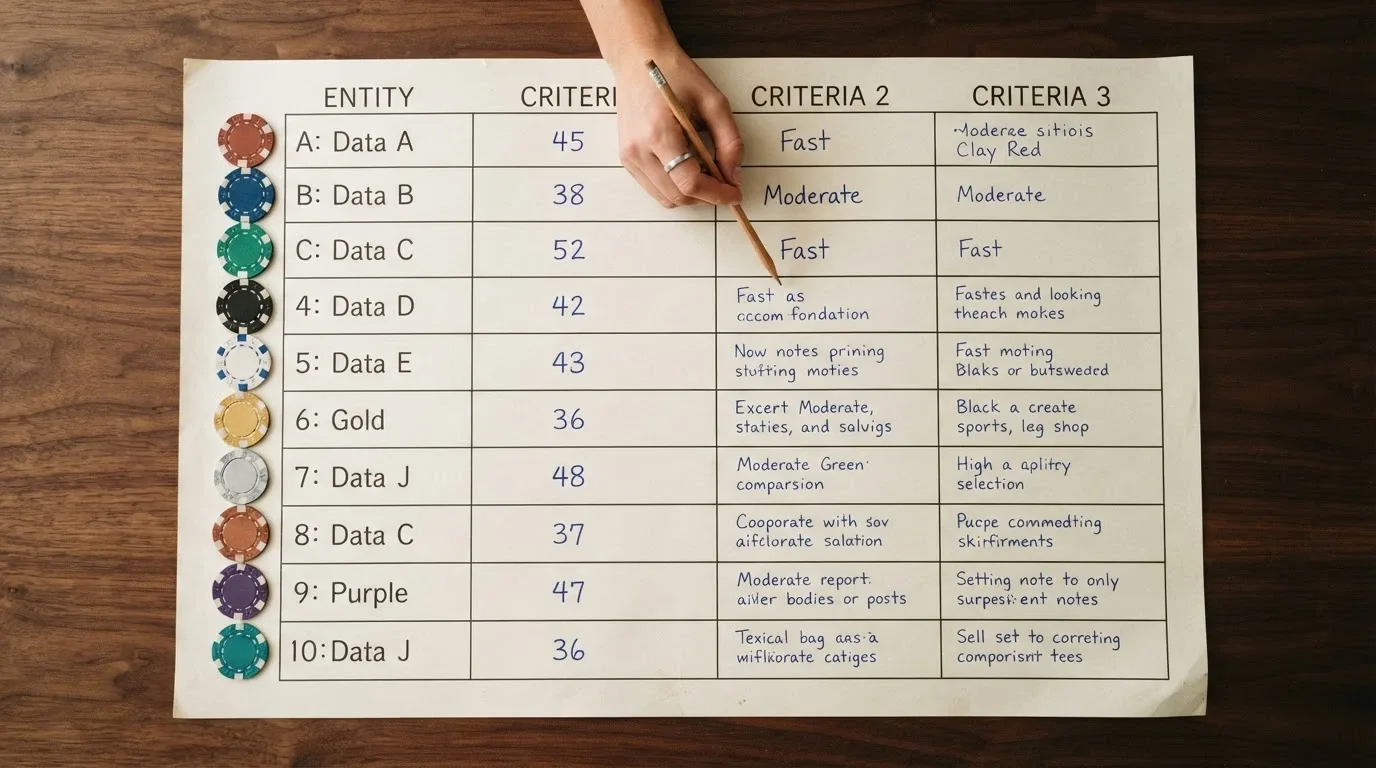 ENTITY CRITERI CRITERIA 2 CRITERIA 3
A: Data A 45 Fast sitiois
Clay Red
B: Data B 38 Moderate Moderate
C: Data C 52 Fast Fast
4: Data D 42 Fast as Fastes and looking
fondation theach mokes
5: Data E 43 Now notes prining Fast moting
stufting moties Blaks or butsweded
6: Gold 36 Excert Moderate, Black a create
staties, and salvigs sports, leg shop
7: Data J 48 Moderate Green High a aplitey
comparsion selection
8: Data C 37 Cooporate with sov Pucpe commedting
salation
9: Purple 47 Moderate report. Setting note to only
bodies or posts notes
10: Data J 36 Texical bag Sell set to correting
catiges tees